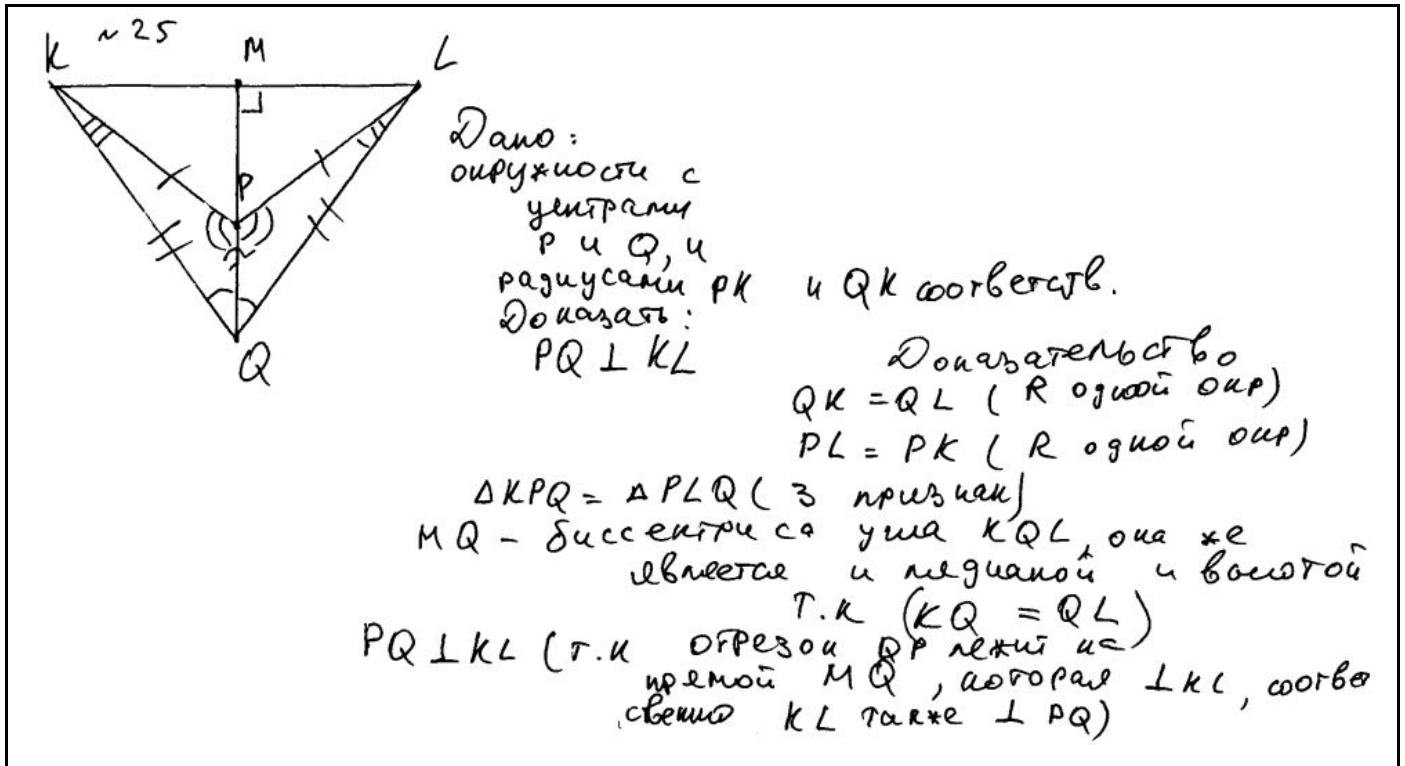 №25
K M L
P
Q
Дано:
окружности с
центрами
P и Q, и
радиусами PK и QK соответств.
Доказать:
PQ ⊥ KL
Доказательство
QK = QL ( R одной окр)
PL = PK ( R одной окр)
ΔKPQ = ΔPLQ ( 3 признак)
MQ - биссектриса угла KQL, она же
является и медианой и высотой
т.к (KQ = QL)
PQ ⊥ KL (т.к отрезок QP лежит на
прямой MQ, которая ⊥ KL, соотве
свенно KL также ⊥ PQ)